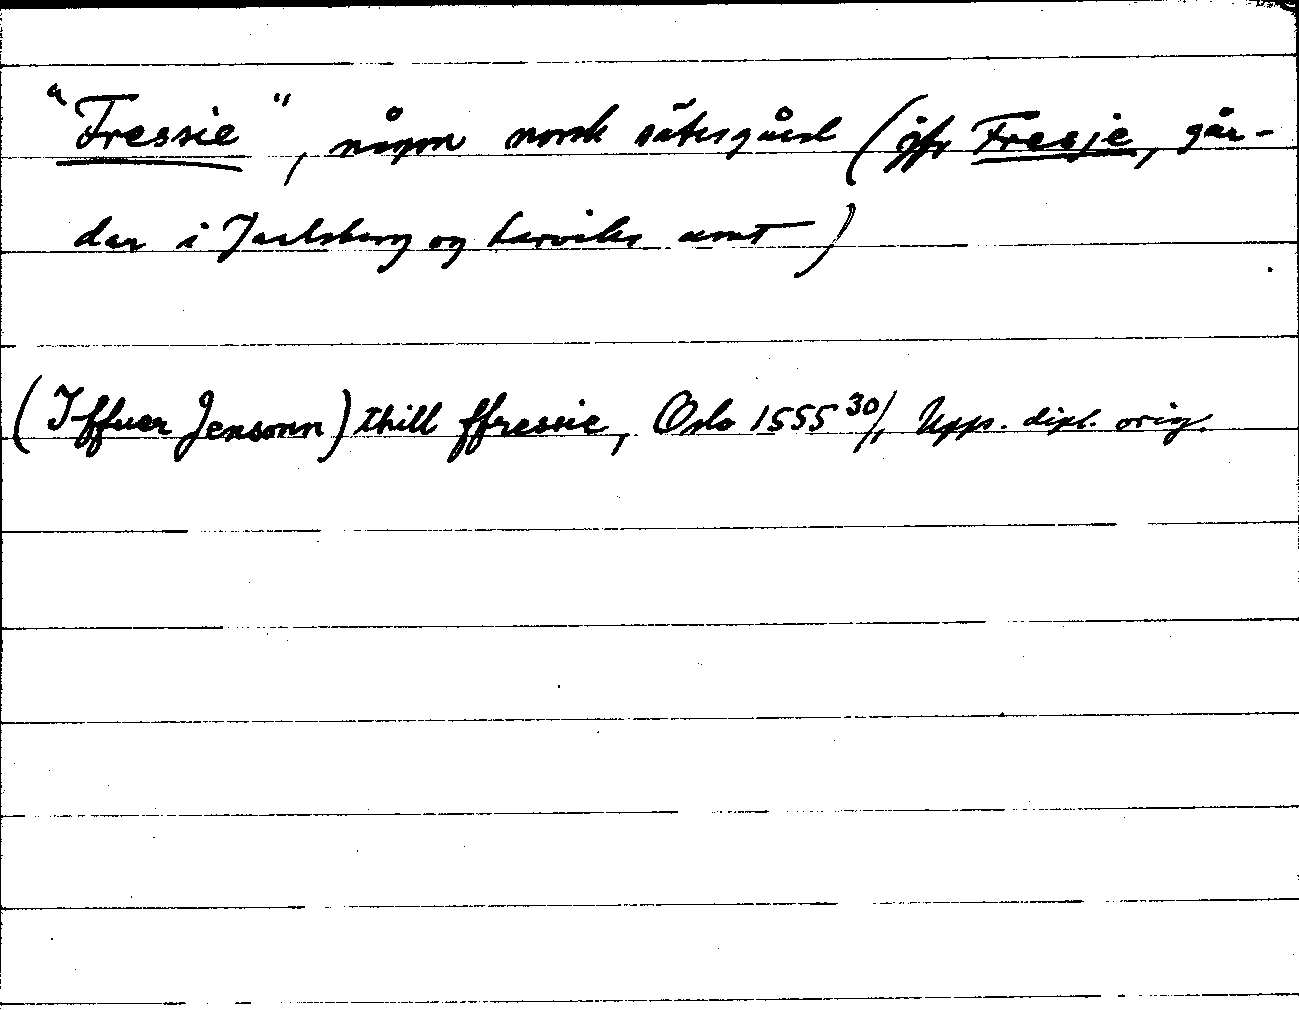 "Fressie", någon norsk sätesgård (jfr Fresje, går-
dar i Jarlsberg og Larviks amt)
(Iffuer Jensonn) thill ffressie, Oslo 1555 30/1 Upps. dipl. orig.